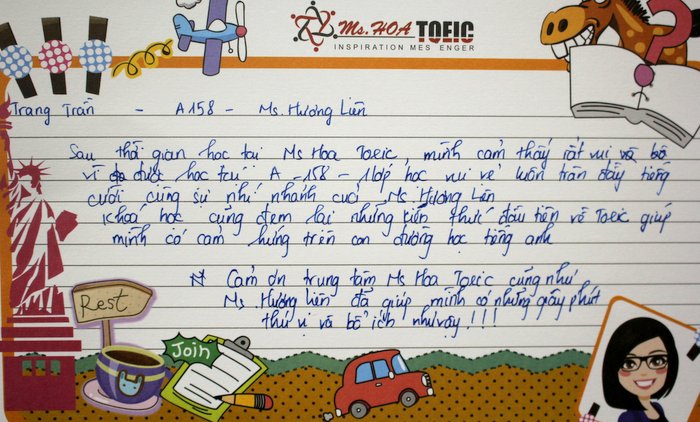 Ms. HOA TOEIC
INSPIRATION MES ENGER
Trang Trần - A158 - Ms. Hương Liên
Sau thời gian học tại Ms Hoa Toeic mình cảm thấy rất vui và bổ
vì được học tại A-158 - 1 lớp học vui vẻ luôn tràn đầy tiếng
cười cùng sự nhí nhảnh của Ms Hương Liên
Khoá học cũng đem lại những kiến thức đầu tiên về Toeic giúp
mình có cảm hứng trên con đường học tiếng anh
Cảm ơn trung tâm Ms Hoa Toeic cũng như
Ms Hương Liên đã giúp mình có những giây phút
thú vị và bổ ích như vậy !!!
Rest
Join